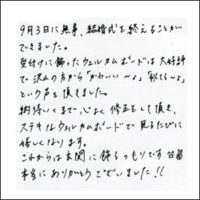 9月3日に無事、結婚式を終えることが
できました。
受付けに飾ったウェルカムボードは大好評
で沢山の方から「かわいい〜よ」「似てる〜よ」
という声を頂きました。
納得いくまで、心よく修正をして頂き、
ステキなウェルカムボードで見るたびに
嬉しくなります。
これからは玄関に飾るつもりです
本当にありがとうございました!!